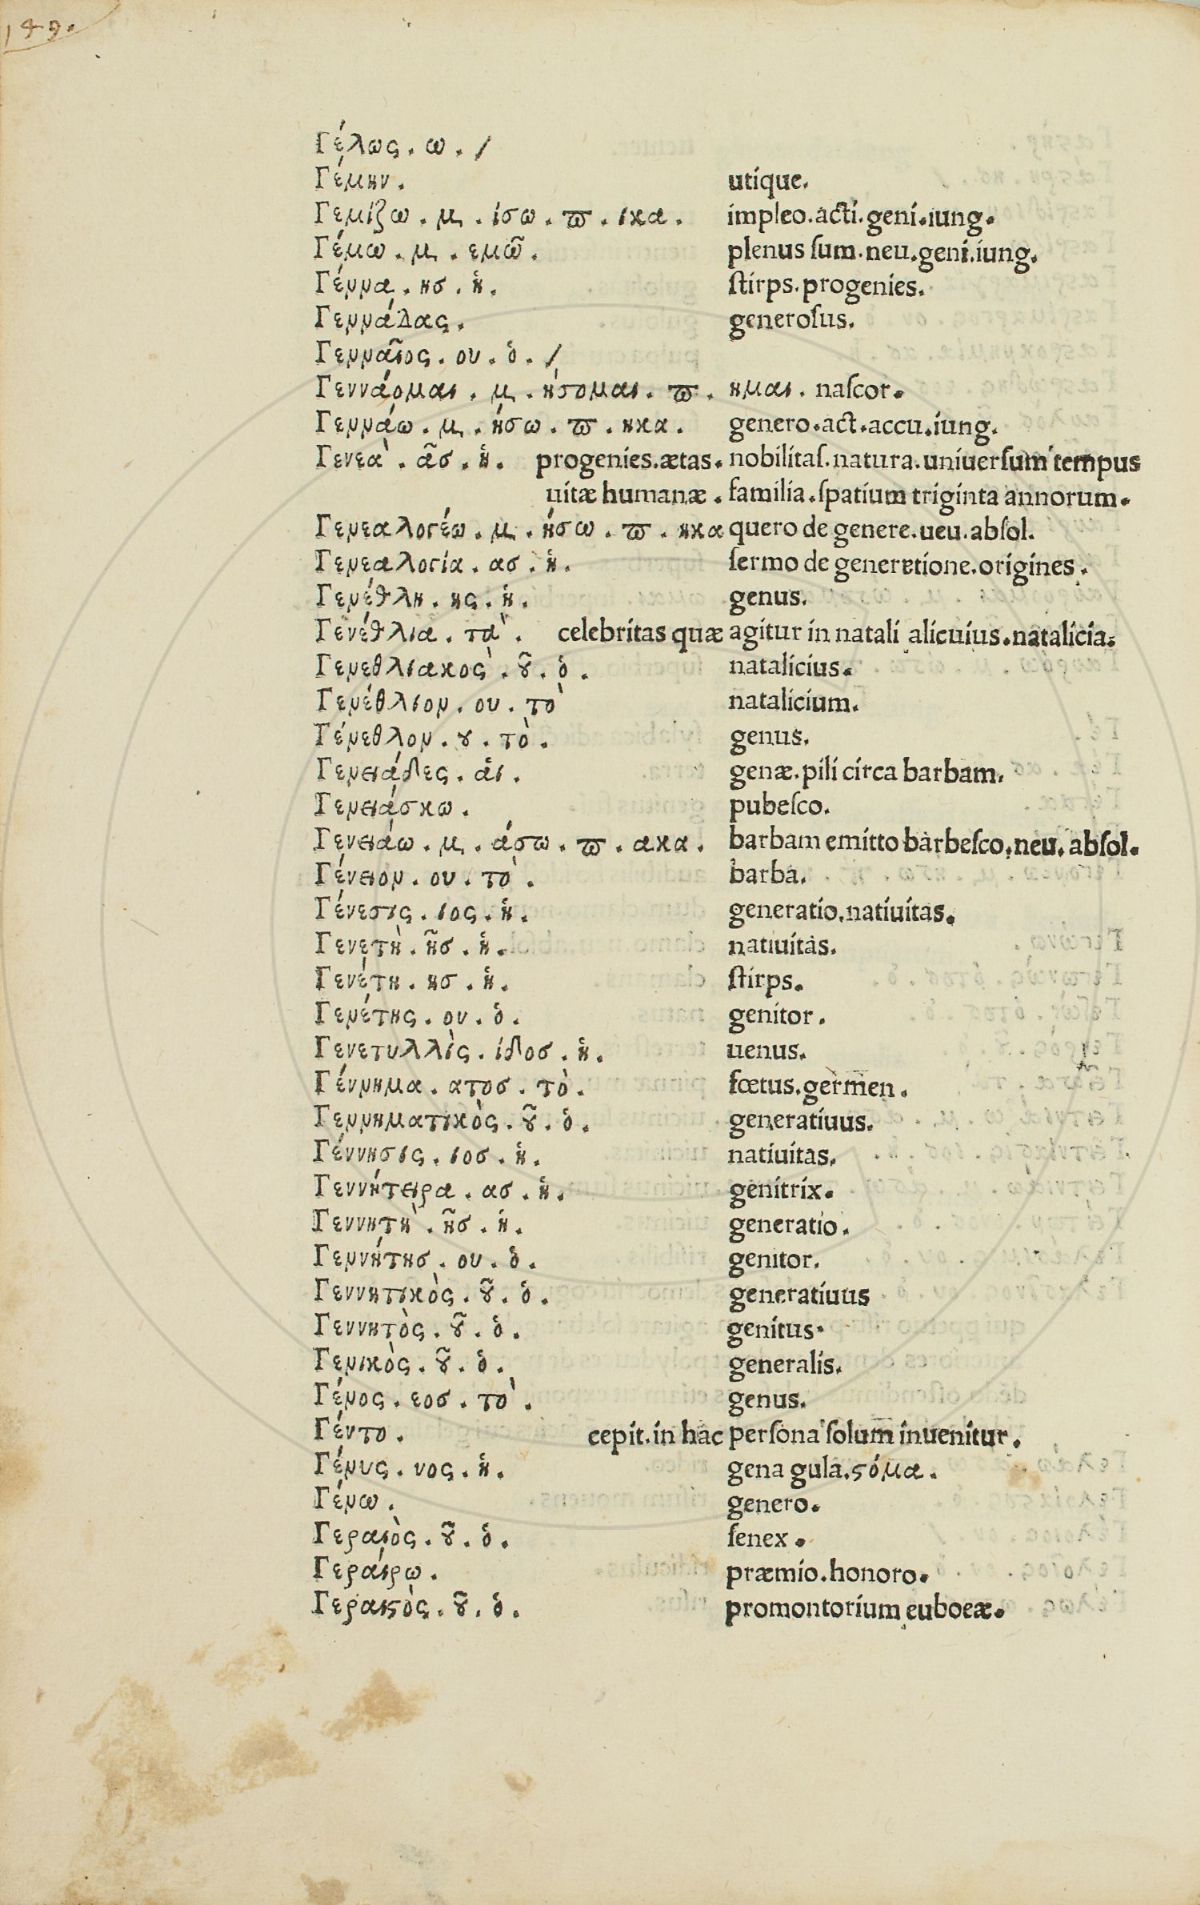 149.
Γέλως. ω. /
Γέμην. utique.
Γεμίζω. μ. ίσω. ϖ. ικα. impleo. acti. geni. iung.
Γέμω. μ. εμῶ. plenus sum. neu. geni. iung.
Γέννα. ησ. ἡ. stirps. progenies.
Γεννάδας. generosus.
Γενναῖος. ου. ὁ. /
Γεννάομαι. μ. ήσομαι. ϖ. ημαι. nascor.
Γεννάω. μ. ήσω. ϖ. ηκα. genero. act. accu. iung.
Γενεὰ. ᾶσ. ἡ. progenies. ætas. nobilitas. natura. uniuersum tempus
uitæ humanæ. familia. spatium triginta annorum.
Γενεαλογέω. μ. ήσω. ϖ. ηκα quero de genere. ueu. absol.
Γενεαλογία. ασ. ἡ. sermo de generetione. origines.
Γενέθλη. ης. ἡ. genus.
Γενέθλια. τὰ. celebritas quæ agitur in natali alicuius. natalicia.
Γενεθλιακὸς. ȣ͂. ὁ. natalicius.
Γενέθλιον. ου. τὸ natalicium.
Γένεθλον. ȣ. τὸ. genus.
Γενειάδες. ἁι. genæ. pili circa barbam.
Γενειάσκω. pubesco.
Γενειάω. μ. άσω. ϖ. ακα. barbam emitto barbesco. neu. absol.
Γένειον. ου. τὸ. barba.
Γένεσις. ιος. ἡ. generatio. natiuitas.
Γενετὴ. ῆσ. ἡ. natiuitas.
Γενέτη. ησ. ἡ. stirps.
Γενέτης. ου. ὁ. genitor.
Γενετυλλὶς. ίδοσ. ἡ. uenus.
Γέννημα. ατοσ. τὸ. fœtus. germen.
Γεννηματικὸς. ȣ͂. ὁ. generatiuus.
Γέννησις. ιοσ. ἡ. natiuitas.
Γεννήτειρα. ασ. ἡ. genitrix.
Γεννητὴ. ῆσ. ἡ. generatio.
Γεννήτησ. ου. ὁ. genitor.
Γεννητικὸς. ȣ͂. ὁ. generatiuus
Γεννητὸς. ȣ͂. ὁ. genitus.
Γενικὸς. ȣ͂. ὁ. generalis.
Γένος. εοσ. τὸ. genus.
Γέντο. cepit. in hac persona solum inuenitur.
Γένυς. υος. ἡ. gena gula. ϛόμα.
Γένω. genero.
Γεραιὸς. ȣ͂. ὁ. senex.
Γεραίρω. præmio. honoro.
Γεραιϛὸς. ȣ͂. ὁ. promontorium euboeæ.